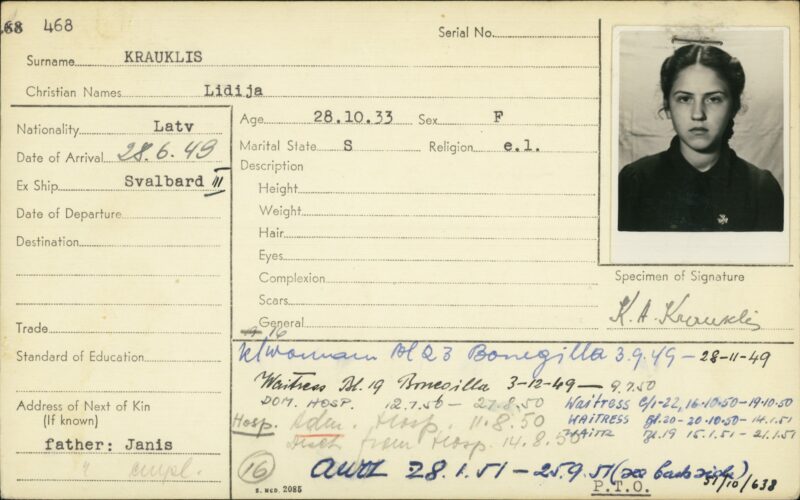 468 468
Serial No.
Surname KRAUKLIS
Christian Names Lidija
Nationality Latv
Date of Arrival 28.6.49
Ex Ship Svalbard III
Date of Departure
Destination
Trade
Standard of Education
Address of Next of Kin
(If known)
father: Janis
" empl.
Age 28.10.33 Sex F
Marital State S Religion e.l.
Description
Height
Weight
Hair
Eyes
Complexion
Scars
General
16
K/woman Bl 23 Bonegilla 3.9.49 - 28-11-49
Waitress Bl. 19 Bonegilla 3-12-49 - 9.7.50
DOM. HOSP. 12.7.50 - 27.8.50
Hosp. Adm. Hosp. 11.8.50
Disch from Hosp. 14.8.50
Waitress 16-10-50 - 19-10-50
WAITRESS Bl.20 - 20-10-50 - 14.1.51
Bl.19 15.1.51 - 21.1.51
16
28.1.51 - 25.9.51 (see back side)
P.T.O. 31/10/638
S. MCD. 2085
Specimen of Signature
K. A. Krauklis